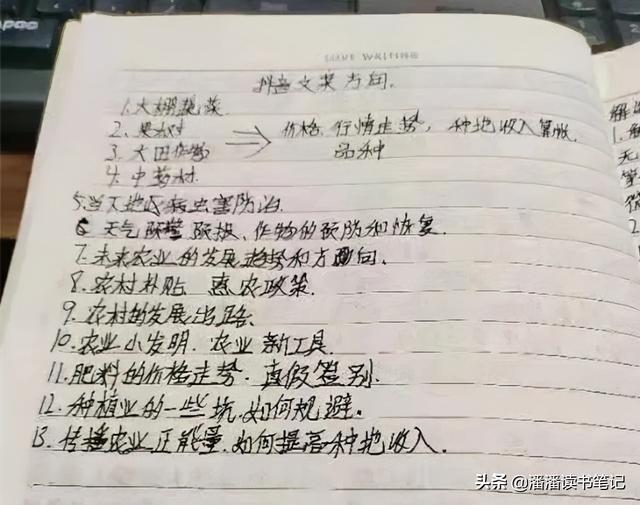 抖音文案方向.
1.大棚蔬菜.
2.果树
3.大田作物
4.中药材.
价格,行情走势, 种地收入算账.
品种
5.当下地区病虫害防治.
6 天气 预报、作物的预防和恢复.
7.未来农业的发展趋势和方向.
8.农村补贴 惠农政策.
9.农村的发展出路.
10.农业小发明.农业新工具.
11.肥料的价格走势.真假鉴别.
12.种植业的一些坑.如何规避.
13.传播农业正能量.如何提高种地收入.
1.
2
头条 @潘潘读书笔记